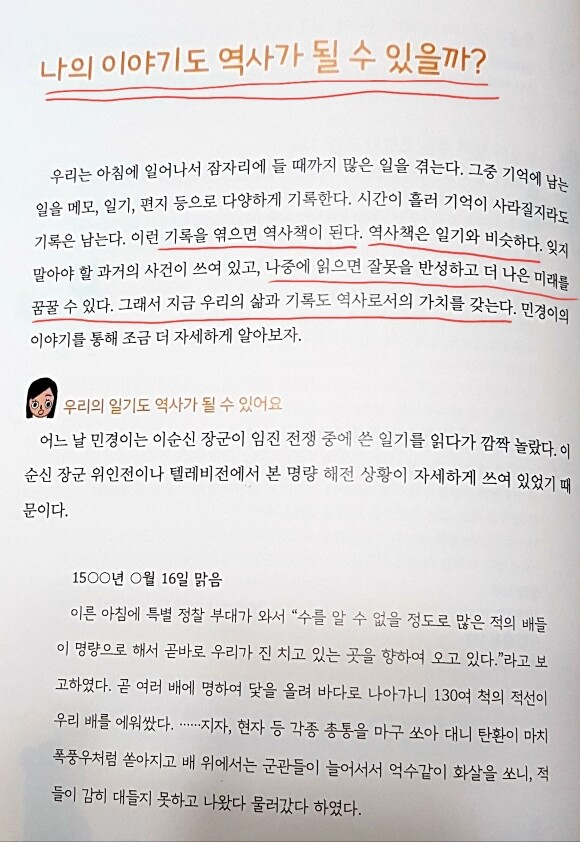 나의 이야기도 역사가 될 수 있을까?
우리는 아침에 일어나서 잠자리에 들 때까지 많은 일을 겪는다. 그중 기억에 남는
일을 메모, 일기, 편지 등으로 다양하게 기록한다. 시간이 흘러 기억이 사라질지라도
기록은 남는다. 이런 기록을 엮으면 역사책이 된다. 역사책은 일기와 비슷하다. 잊지
말아야 할 과거의 사건이 쓰여 있고, 나중에 읽으면 잘못을 반성하고 더 나은 미래를
꿈꿀 수 있다. 그래서 지금 우리의 삶과 기록도 역사로서의 가치를 갖는다. 민경이의
이야기를 통해 조금 더 자세하게 알아보자.
우리의 일기도 역사가 될 수 있어요
어느 날 민경이는 이순신 장군이 임진 전쟁 중에 쓴 일기를 읽다가 깜짝 놀랐다. 이
순신 장군 위인전이나 텔레비전에서 본 명량 해전 상황이 자세하게 쓰여 있었기 때
문이다.
15○○년 ○월 16일 맑음
이른 아침에 특별 정찰 부대가 와서 “수를 알 수 없을 정도로 많은 적의 배들
이 명량으로 해서 곧바로 우리가 진 치고 있는 곳을 향하여 오고 있다.”라고 보
고하였다. 곧 여러 배에 명하여 닻을 올려 바다로 나아가니 130여 척의 적선이
우리 배를 에워쌌다. ……지자, 현자 등 각종 총통을 마구 쏘아 대니 탄환이 마치
폭풍우처럼 쏟아지고 배 위에서는 군관들이 늘어서서 억수같이 화살을 쏘니, 적
들이 감히 대들지 못하고 나왔다 물러갔다 하였다.